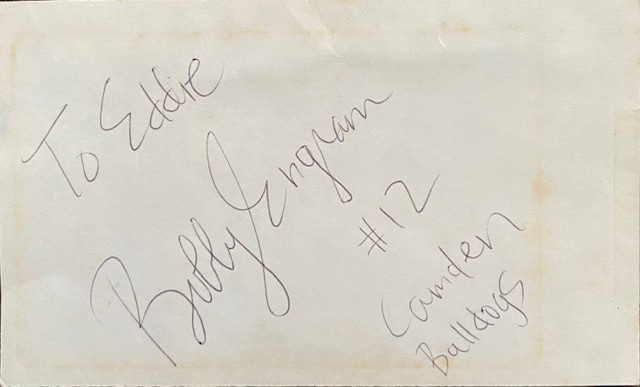 To Eddie
Bobby Engram
#12
Camden
Bulldogs